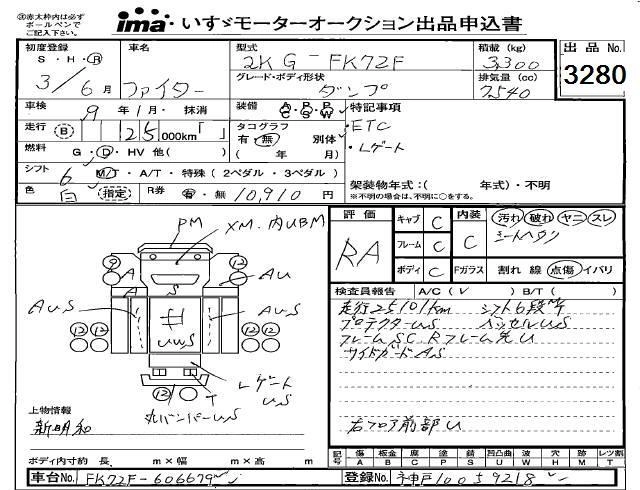 ※赤太枠内は必ず
ボールペンで
ご記入下さい。
ima いすゞモーターオークション出品申込書
初度登録
S・H・R
3/6月
車名
ファイター
型式
2KG-FK72F
グレード・ボディ形状
ダンプ
積載 (kg)
3,300
排気量 (cc)
7,540
出品 No.
3280
車検 9年1月・抹消
装備 A/C P/S P/W
特記事項
・ETC
・Lゲート
走行 (B) 25,000km「 」
タコグラフ
有・無 別体
( 年 月)
燃料 G・D・HV 他( )
シフト 6 M/T・A/T・特殊(2ペダル・3ペダル)
色 白 (指定) R券 有・無 10,910円
架装物年式:( 年式)・不明
※不明の場合は、不明に○をする。
評価
RA
キャブ C
フレーム C
ボディ C
内装
C
Fガラス
汚れ 破れ ヤニ スレ
シートヘタリ
割れ 線 点傷 イバリ
検査員報告 A/C( V ) B/T( )
走行25101km シフト6段M/T
プロテクターUS ベッセルUS
フレームSC Rフレーム先U
サイドガードAS
右フロア前部U
PM
XM.内UBM
AU
AUS
AUS
A
A
S
井
UWS
9
12
12
12
12
12
12
LゲートUS
T
丸バンパーUS
上物情報
新明和
ボディ内寸約 長 m×幅 m×高 m
記号 傷A 板金B 腐C 凹P 塗S 錆U 凹凸曲W 波H 穴M 跡T レツ割
車台No. FK72F-606679
登録No. 神戸100す9218